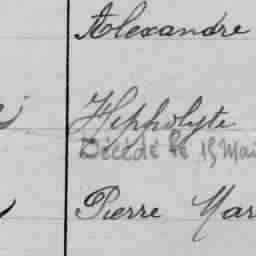 Alexandre
Hippolyte
Décédé le 15 Mai
Pierre Mar